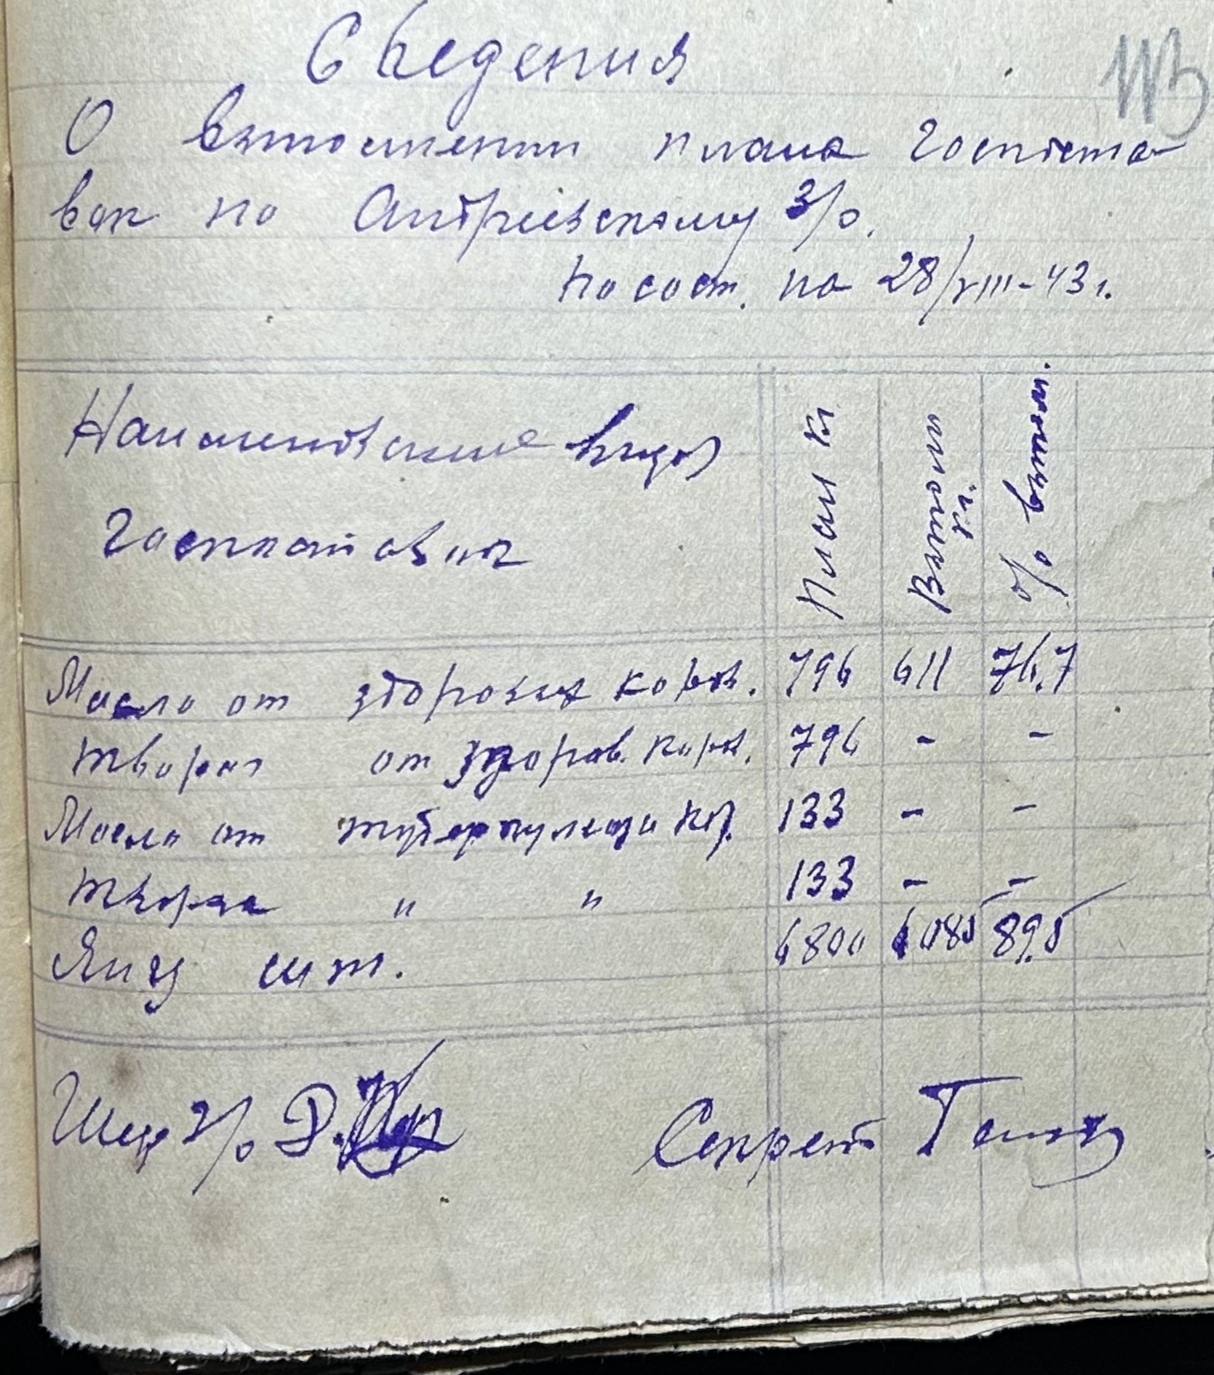 113
Сведения
О выполнении плана Госпоста-
вок по Андреевскому З/о.
По сост. на 28/VIII-43 г.
Наименование видов План кг Выполн кг. % выполн.
Госпоставок
Масло от здоровых коров. 796 611 76,7
Творог от здоров. коров. 796 - -
Масло от туберкулезн кор. 133 - -
Творог " " 133 - -
Яиц шт. 6800 6085 89,5
З/о Д. Секрет